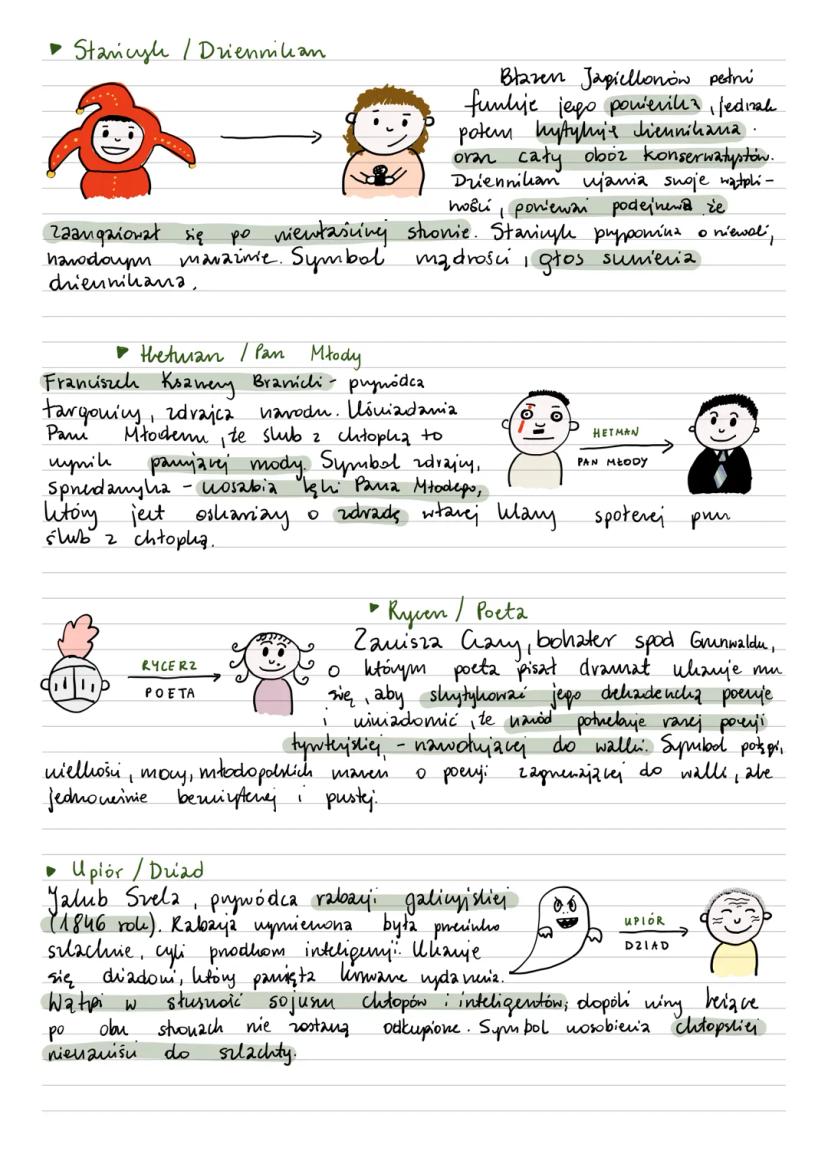 Stańczyk / Dziennikarz
Błazen Jagiellonów pełni
funkcję jego powiernika, jednak
potem krytykuje dziennikarza
oraz cały obóz konserwatystów.
Dziennikarz ujawnia swoje wątpli-
wości, ponieważ podejrzewa że
zaangażował się po niewłaściwej stronie. Stańczyk przypomina o niewoli,
narodowym marazmie. Symbol mądrości, głos sumienia
dziennikarza.
Hetman / Pan Młody
Franciszek Ksawery Branicki - przywódca
targowicy, zdrajca narodu. Uświadamia
Panu Młodemu, że ślub z chłopką to
wynik panującej mody. Symbol zdrajcy,
sprzedawczyka - uosabia lęki Pana Młodego,
który jest oskarżany o zdradę własnej klasy społecznej przez
ślub z chłopką.
HETMAN
PAN MŁODY
Rycerz / Poeta
Zawisza Czarny, bohater spod Grunwaldu,
o którym poeta pisał dramat ukazuje mu
się, aby skrytykować jego dekadencką poezję
i uświadomić, że naród potrzebuje raczej poezji
tyrtejskiej - nawołującej do walki. Symbol potęgi,
wielkości, mocy, młodopolskich marzeń o poezji zagrzewającej do walki, ale
jednocześnie bezużytecznej i pustej.
RYCERZ
POETA
Upiór / Dziad
Jakub Szela, przywódca rabacji galicyjskiej
(1846 rok). Rabacja wymierzona była przeciwko
szlachcie, czyli przodkom inteligencji. Ukazuje
się dziadowi, który pamięta krwawe wydarzenia.
Wątpi w słuszność sojuszu chłopów i inteligentów; dopóki winy leżące
po obu stronach nie zostaną odkupione. Symbol uosobienia chłopskiej
nienawiści do szlachty.
UPIÓR
DZIAD